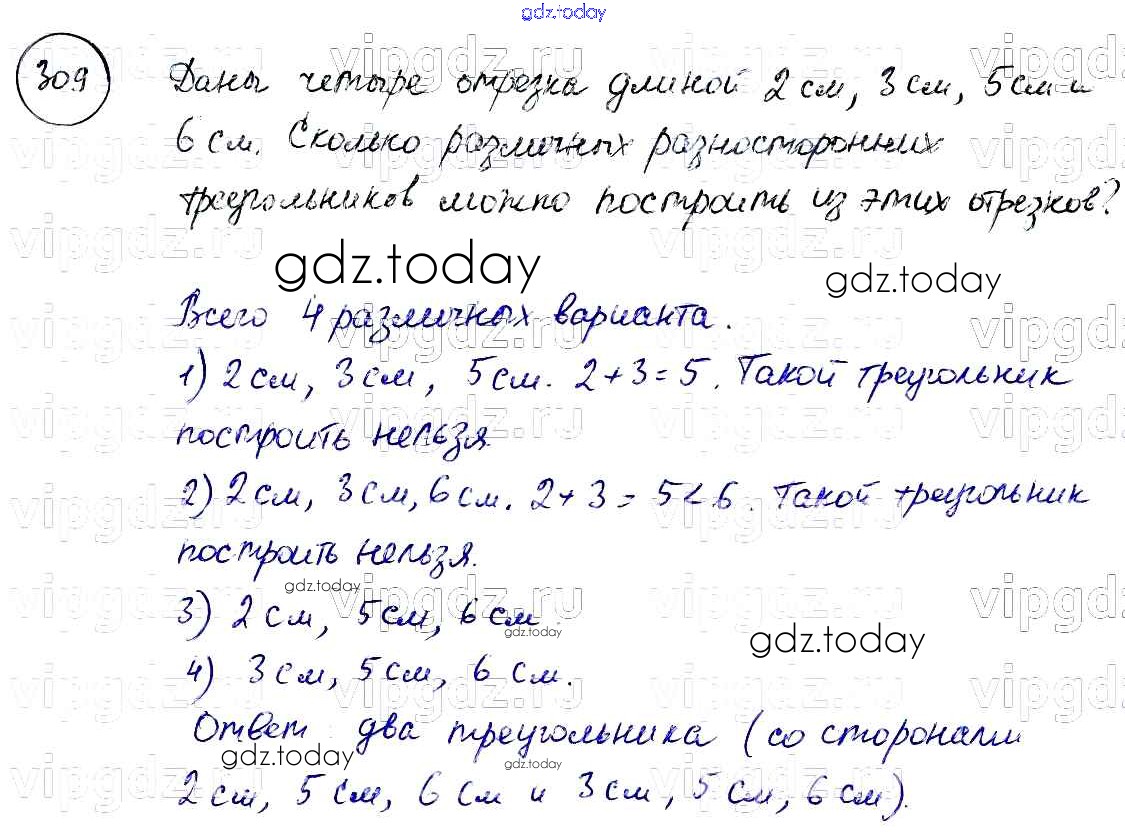 gdz.today
309
Даны четыре отрезка длиной 2 см, 3 см, 5 см и
6 см. Сколько различных разносторонних
треугольников можно построить из этих отрезков?
gdz.today
gdz.today
Всего 4 различных варианта.
1) 2 см, 3 см, 5 см. 2 + 3 = 5. Такой треугольник
построить нельзя
2) 2 см, 3 см, 6 см. 2 + 3 = 5 < 6. Такой треугольник
построить нельзя.
gdz.today
3) 2 см, 5 см, 6 см.
gdz.today
gdz.today
4) 3 см, 5 см, 6 см.
Ответ два треугольника (со сторонами
gdz.today
gdz.today
2 см, 5 см, 6 см и 3 см, 5 см, 6 см).
vipgdz.ru